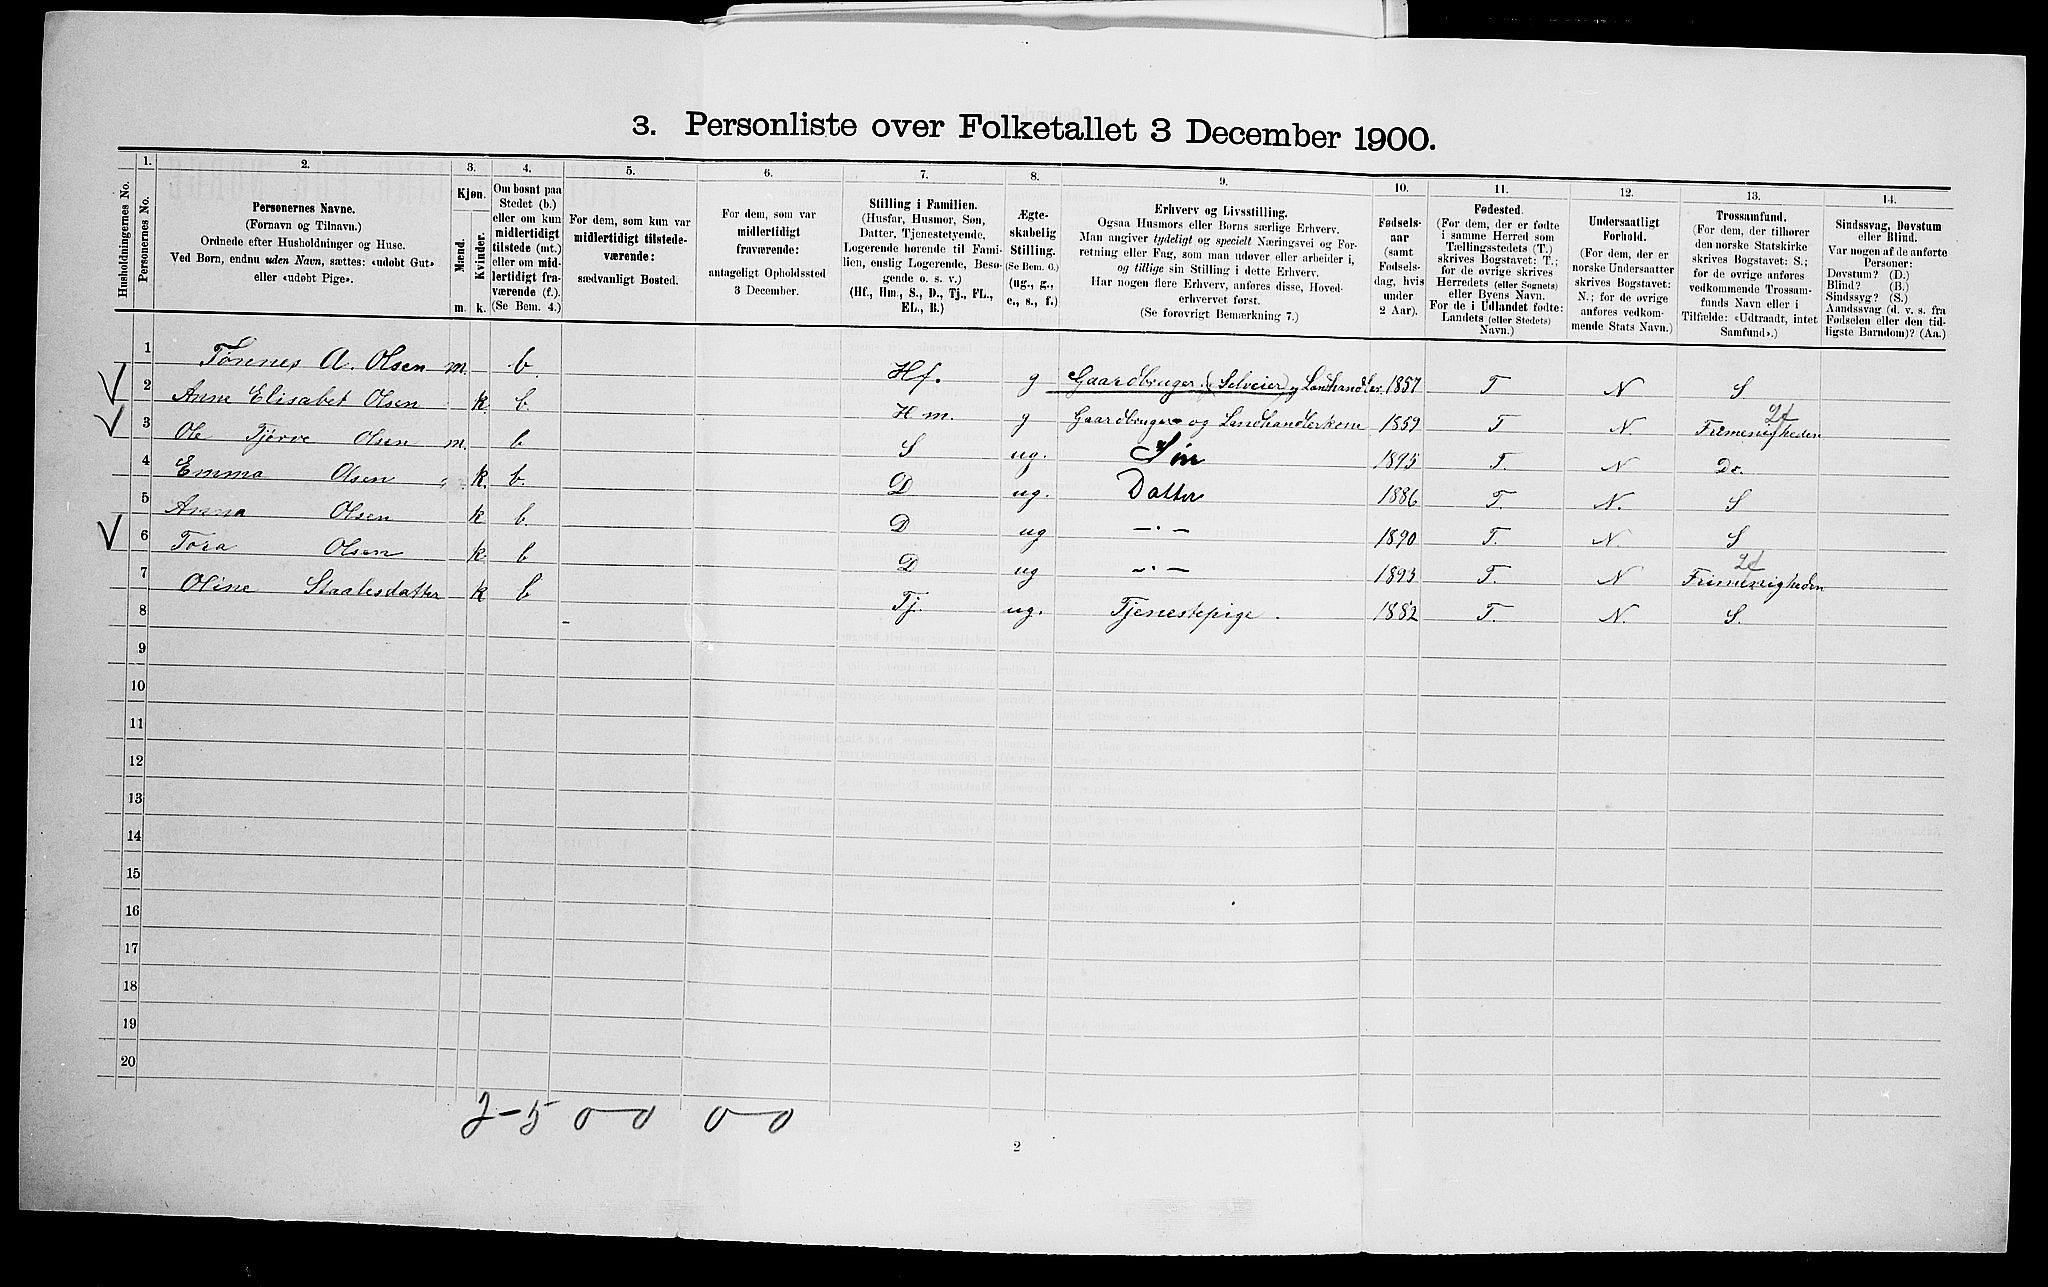 3. Personliste over Folketallet 3 December 1900.
1. 2. 3. 4. 5. 6. 7. 8. 9. 10. 11. 12. 13. 14.
Husholdningernes No.
Personernes No.
Personernes Navne.
(Fornavn og Tilnavn.)
Ordnede efter Husholdninger og Huse.
Ved Børn, endnu uden Navn, sættes: «udøbt Gut»
eller «udøbt Pige».
Kjøn.
Mænd.
Kvinder.
m. k.
Om bosat paa
Stedet (b.)
eller om kun
midlertidigt
tilstede (mt.)
eller om mid-
lertidigt fra-
værende (f.).
(Se Bem. 4.)
For dem, som kun var
midlertidigt tilstede-
værende:
sædvanligt Bosted.
For dem, som var
midlertidigt
fraværende:
antageligt Opholdssted
3 December.
Stilling i Familien.
(Husfar, Husmor, Søn,
Datter, Tjenestetyende,
Logerende hørende til Fami-
lien, enslig Logerende, Besø-
gende o. s. v.)
(Hf., Hm., S., D., Tj., FL.,
EL., B.)
Ægte-
skabelig
Stilling.
(Se Bem. 6.)
(ug., g.,
e., s., f.)
Erhverv og Livsstilling.
Ogsaa Husmors eller Børns særlige Erhverv.
Man angiver tydeligt og specielt Næringsvei og For-
retning eller Fag, som man udøver eller arbeider i,
og tillige sin Stilling i dette Erhverv.
Har nogen flere Erhverv, anføres disse, Hoved-
erhvervet først.
(Se forøvrigt Bemærkning 7.)
Fødsels-
aar
(samt
Fødsels-
dag, hvis
under
2 Aar).
Fødested.
(For dem, der er fødte
i samme Herred som
Tællingsstedets (T.)
skrives Bogstavet: T.;
for de øvrige skrives
Herredets (eller Sognets)
eller Byens Navn.
For de i Udlandet fødte:
Landets (eller Stedets)
Navn.)
Undersaatligt
Forhold.
(For dem, der er
norske Undersaatter
skrives Bogstavet:
N.; for de øvrige
anføres vedkom-
mende Stats Navn.)
Trossamfund.
(For dem, der tilhører
den norske Statskirke
skrives Bogstavet: S.;
for de øvrige anføres
vedkommende Trossam-
funds Navn eller i
Tilfælde: «Udtraadt, intet
Samfund».)
Sindssvag, Døvstum
eller Blind.
Var nogen af de anførte
Personer:
Døvstum? (D.)
Blind? (B.)
Sindssyg? (S.)
Aandssvag (d. v. s. fra
Fødselen eller den tid-
ligste Barndom)? (Aa.)
1 Tørenes A. Olsen m. b. Hf. g Gaardbruger (Selveier) og Landhandler 1857 T N S
2 Anne Elisabet Olsen k b. Hm. g Gaardbruger og Landhandlerkone 1859 T N. Frimenigheden
3 Ole Tjerve Olsen m. b S ug. Søn 1895 T. N Do.
4 Emma Olsen k. b. D ug. Datter 1886 T. N. S
5 Anna Olsen k b. D ug —〃— 1890 T. N. S
6 Tora Olsen k. b D ug —〃— 1893 T. N Frimenigheden
7 Oline Staalesdatter k b Tj. ug. Tjenestepige. 1882 T. N. S.
8
9
10
11
12
13
14
15
16
17
18
19
20
2-5 0-0 0-0
2